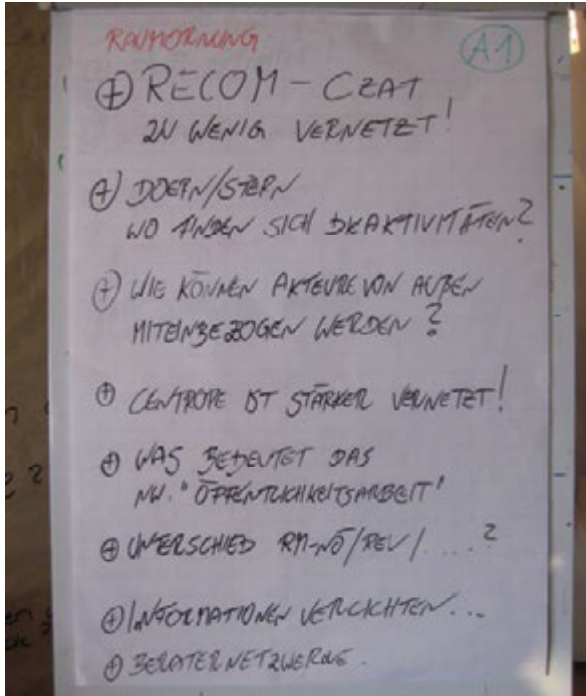 RAUMORDNUNG
A1
⊕ RECOM - CZAT
ZU WENIG VERNETZT!
⊕ DOERN/STERN
WO FINDEN SICH AKTIVITÄTEN?
⊕ WIE KÖNNEN AKTEURE VON AUßEN
MITEINBEZOGEN WERDEN?
⊕ CENTROPE IST STÄRKER VERNETZT!
⊕ WAS BEDEUTET DAS
NW. "ÖFFENTLICHKEITSARBEIT"
⊕ UNTERSCHIED RM-NÖ/REV/....?
⊕ INFORMATIONEN VERDICHTEN...
⊕ BERATERNETZWERKE.